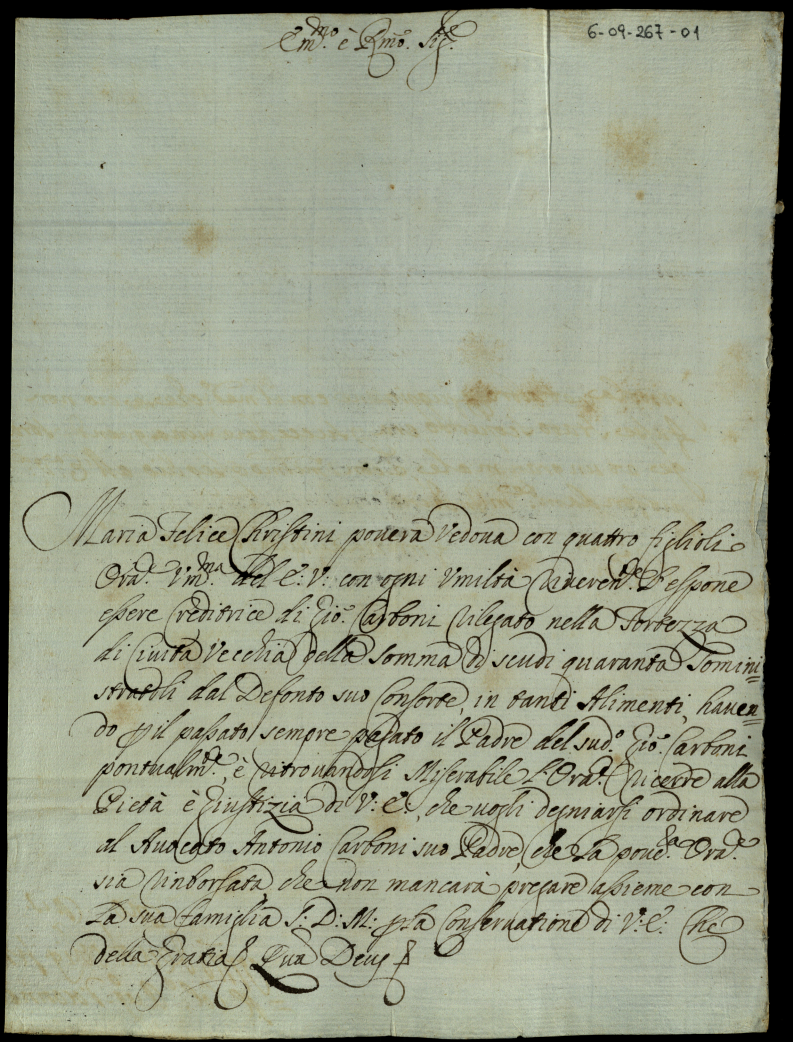 Em.mo è Rmo. Sig.e
6-09-267-01
Maria Felice Christini povera Vedova con quattro figlioli
Ora.e Vm.ma dell' E: V: con ogni Vmiltà riveren.te l'espone
essere Creditrice di Gio: Carboni rilegato nella Fortezza
di Civita Vecchia della somma di scudi quaranta Somini=
stratoli dal Defonto suo Consorte, in tanti Alimenti, haven=
do p il passato sempre pagato il Padre del sud.o Gio: Carboni
pontualm.te, è ritrovandosi Miserabile l'Ora.e ricorre alla
Pietà è Giustizia di V: E:, che vogli degniarsi ordinare
al Avocato Antonio Carboni suo Padre, che la pove.ra Ora.e
sia rinborsata che non mancarà pregare assieme con
La sua famiglia S: D: M: p la Conservatione di V: E: Che
della Gratia &. Qua Deus &